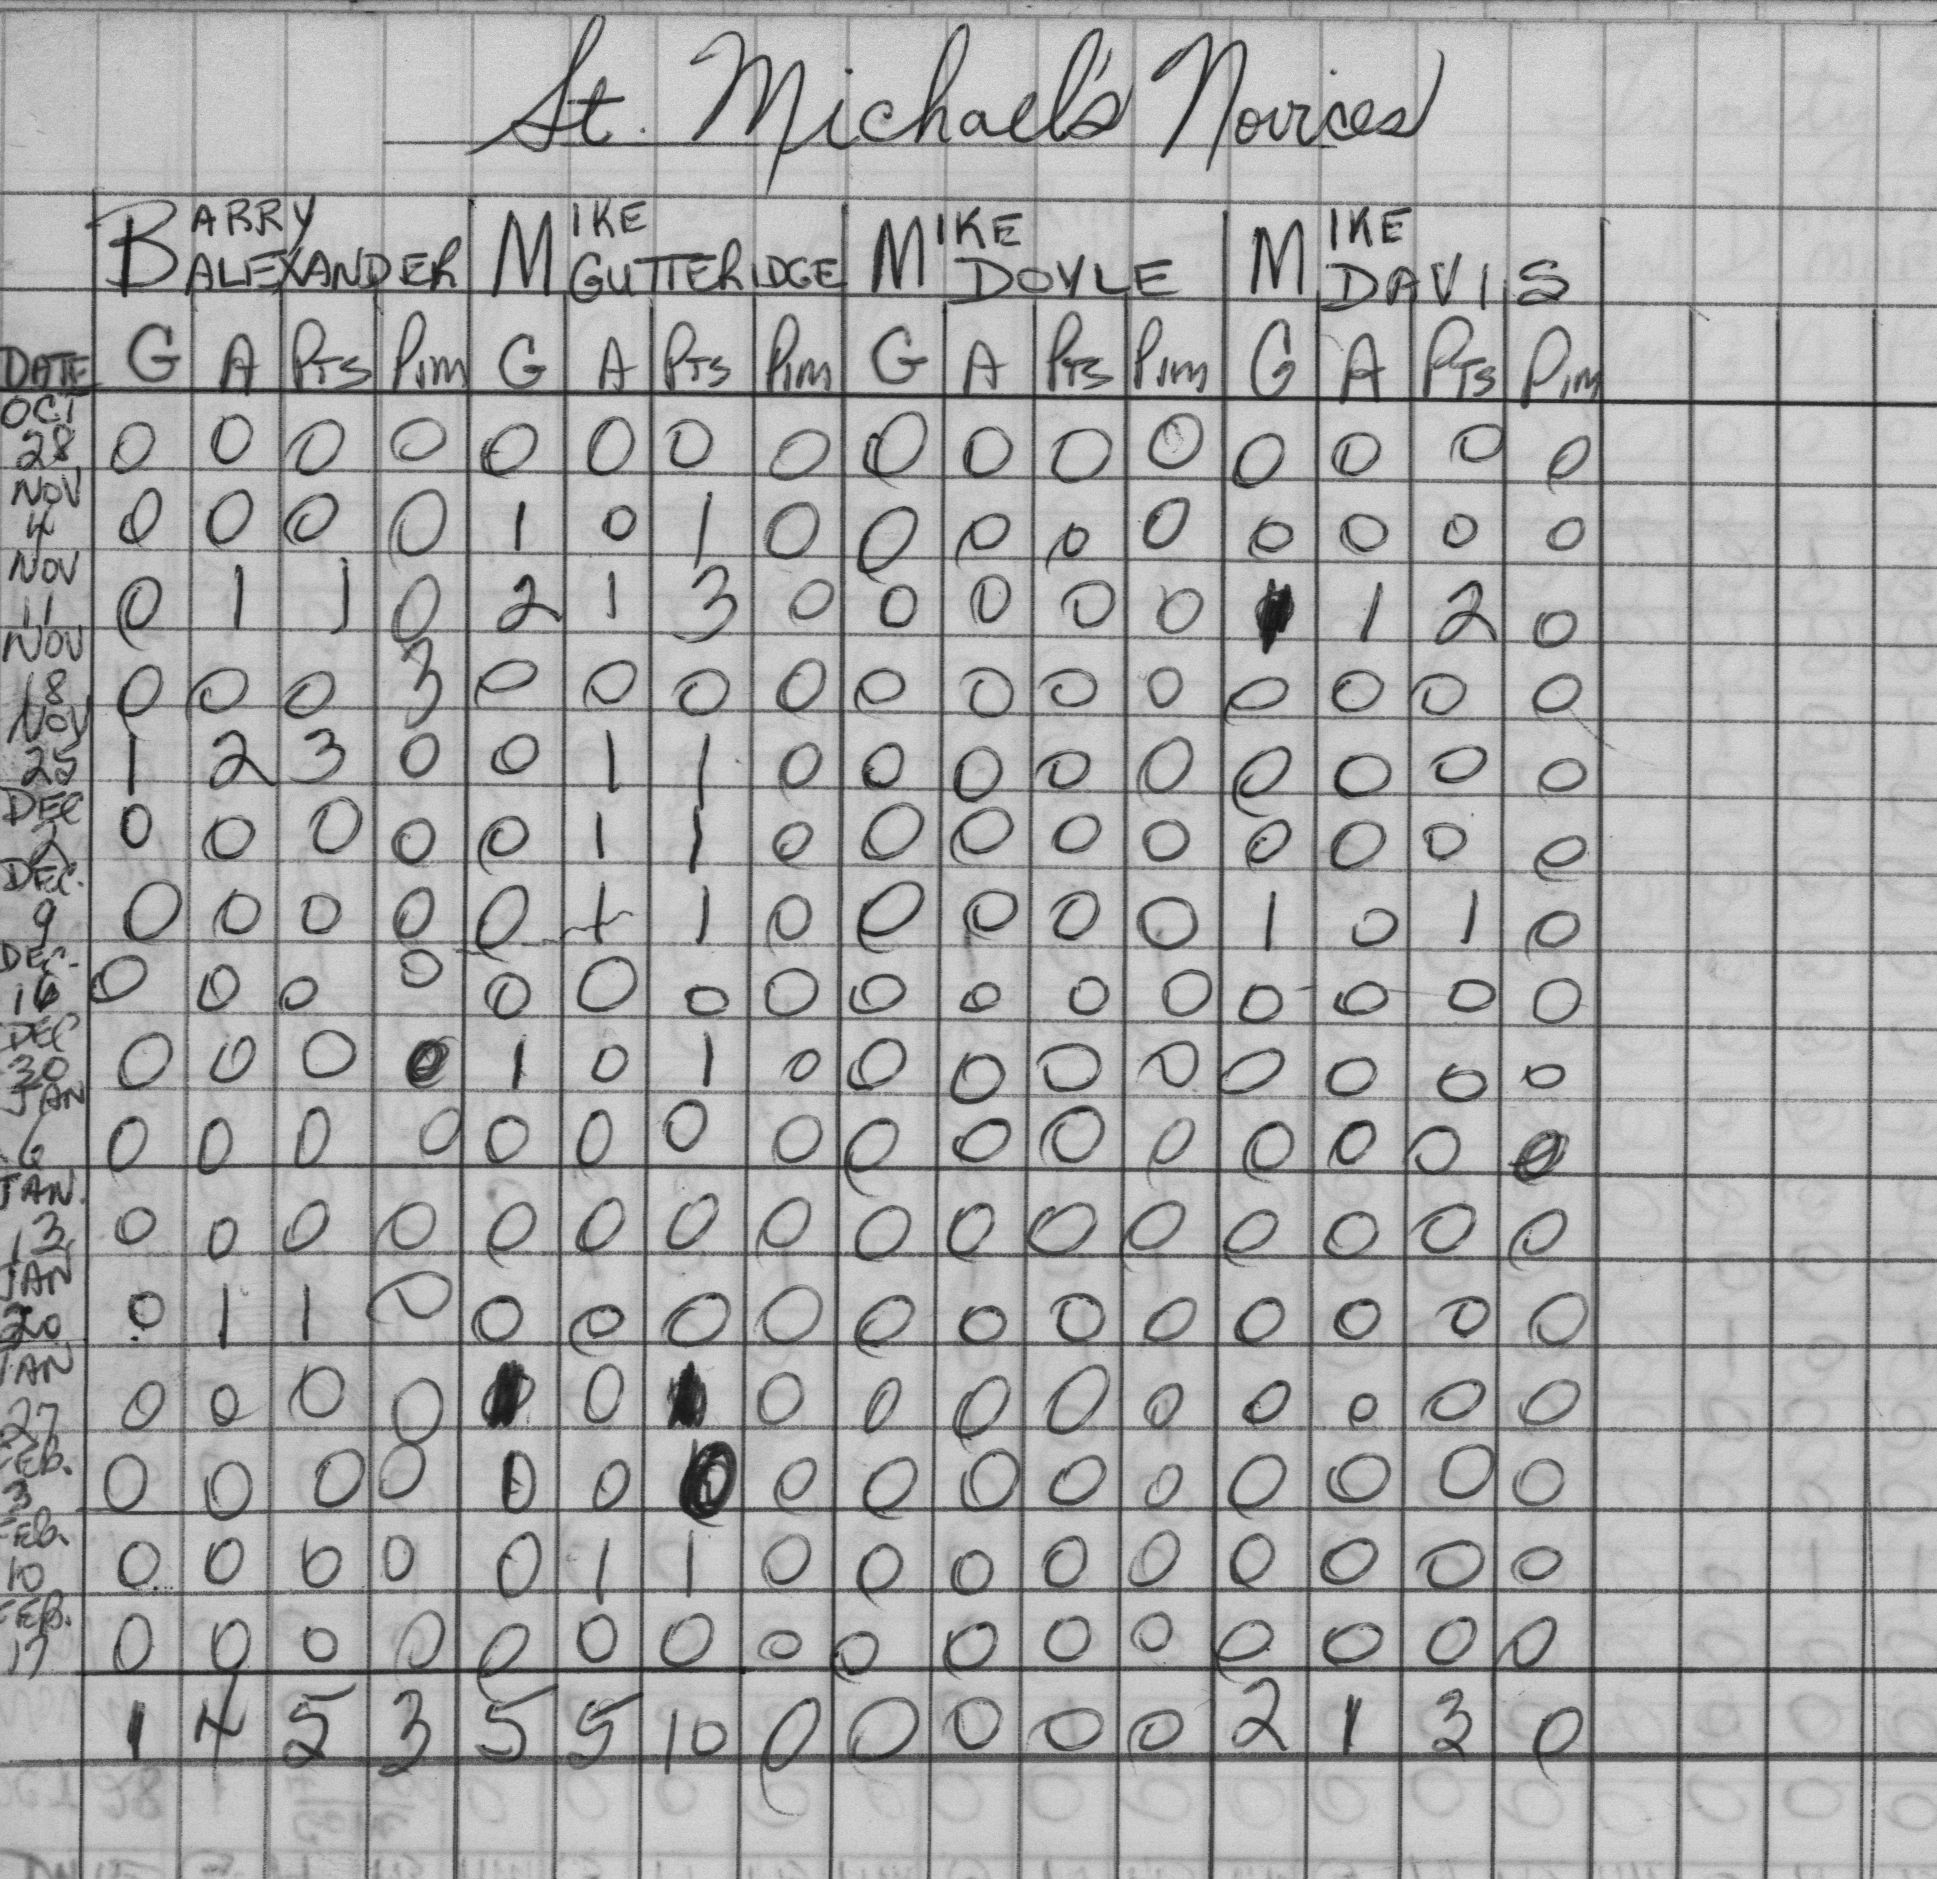 St. Michael's Novices
BARRY ALEXANDER MIKE GUTTERIDGE MIKE DOYLE MIKE DAVIS
DATE G A PTS Pim G A PTS Pim G A PTS Pim G A PTS Pim
OCT 28 0 0 0 0 0 0 0 0 0 0 0 0 0 0 0 0
NOV 4 0 0 0 0 1 0 1 0 0 0 0 0 0 0 0 0
NOV 11 0 1 1 0 2 1 3 0 0 0 0 0 1 1 2 0
NOV 18 0 0 0 3 0 0 0 0 0 0 0 0 0 0 0 0
NOV 25 1 2 3 0 0 1 1 0 0 0 0 0 0 0 0 0
DEC 2 0 0 0 0 0 1 1 0 0 0 0 0 0 0 0 0
DEC. 9 0 0 0 0 0 1 1 0 0 0 0 0 1 0 1 0
DEC. 16 0 0 0 0 0 0 0 0 0 0 0 0 0 0 0 0
DEC 30 0 0 0 0 1 0 1 0 0 0 0 0 0 0 0 0
JAN 6 0 0 0 0 0 0 0 0 0 0 0 0 0 0 0 0
JAN. 13 0 0 0 0 0 0 0 0 0 0 0 0 0 0 0 0
JAN 20 0 1 1 0 0 0 0 0 0 0 0 0 0 0 0 0
JAN 27 0 0 0 0 1 0 1 0 0 0 0 0 0 0 0 0
FEB. 3 0 0 0 0 0 0 0 0 0 0 0 0 0 0 0 0
FEB. 10 0 0 0 0 0 1 1 0 0 0 0 0 0 0 0 0
FEB. 17 0 0 0 0 0 0 0 0 0 0 0 0 0 0 0 0
1 4 5 3 5 5 10 0 0 0 0 0 2 1 3 0